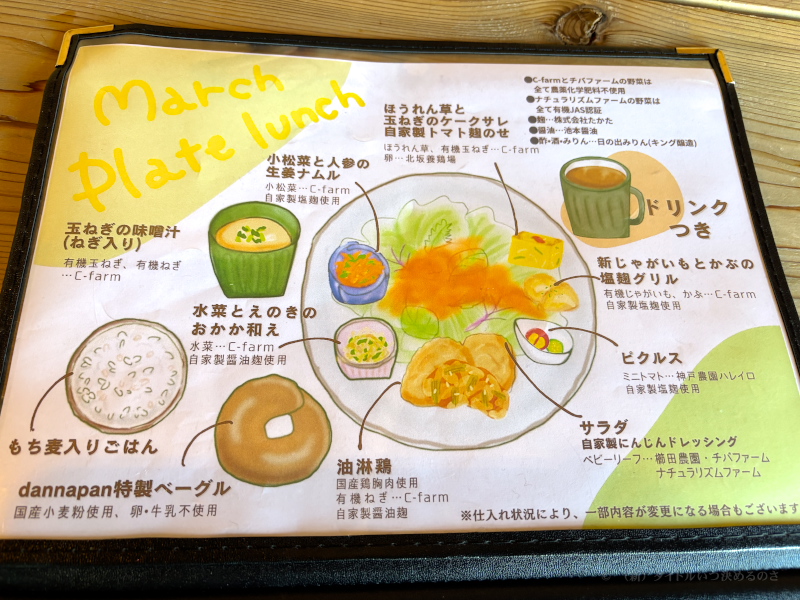 March
Plate lunch
ほうれん草と
玉ねぎのケークサレ
自家製トマト麹のせ
ほうれん草、有機玉ねぎ…C-farm
卵…北坂養鶏場
●C-farmとチバファームの野菜は
全て農薬化学肥料不使用
●ナチュラリズムファームの野菜は
全て有機JAS認証
●麹…株式会社たかた
●醤油…池本醤油
●酢・酒・みりん…日の出みりん(キング醸造)
小松菜と人参の
生姜ナムル
小松菜…C-farm
自家製塩麹使用
ドリンク
つき
玉ねぎの味噌汁
(ねぎ入り)
有機玉ねぎ、有機ねぎ
…C-farm
新じゃがいもとかぶの
塩麹グリル
有機じゃがいも、かぶ…C-farm
自家製塩麹使用
水菜とえのきの
おかか和え
水菜…C-farm
自家製醤油麹使用
ピクルス
ミニトマト…神戸農園ハレイロ
自家製塩麹使用
サラダ
自家製にんじんドレッシング
ベビーリーフ…櫛田農園・チバファーム
ナチュラリズムファーム
もち麦入りごはん
dannapan特製ベーグル
国産小麦粉使用、卵・牛乳不使用
油淋鶏
国産鶏胸肉使用
有機ねぎ…C-farm
自家製醤油麹
※仕入れ状況により、一部内容が変更になる場合もございます
©(新)タイトルいつ決めるのさ